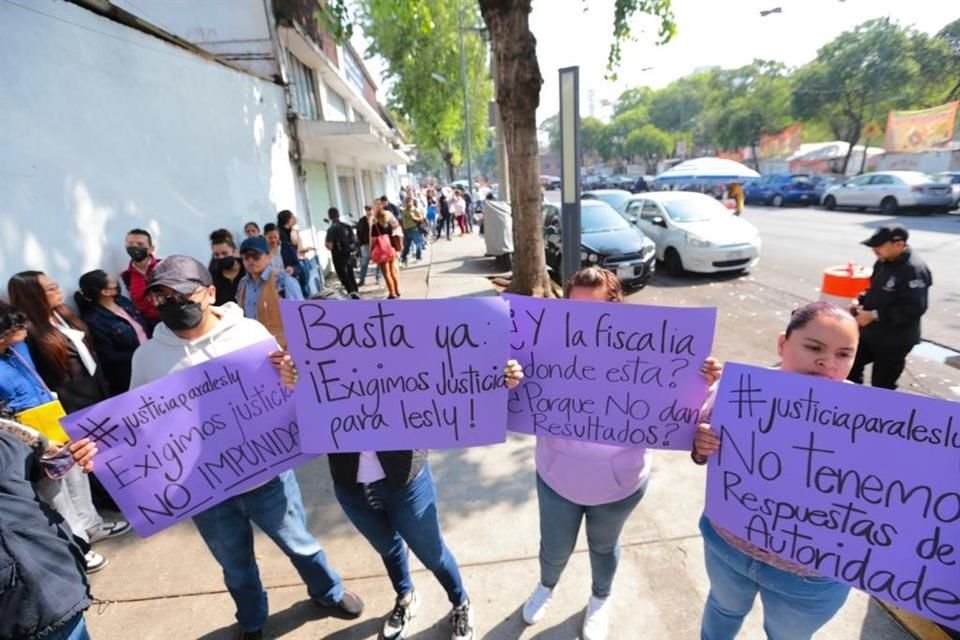 #justiciaparalesly
Exigimos justicia
NO IMPUNIDA
Basta ya:
¡Exigimos Justicia
para lesly!
¿Y la fiscalia
donde esta?
Porque NO dan
Resultados?
#justiciaparalesly
No tenemo
Respuestas de
Autoridade